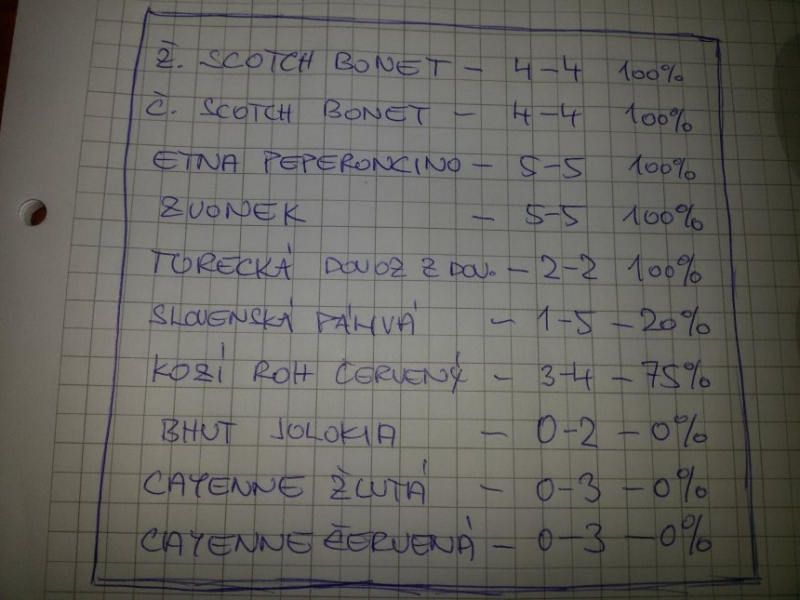 Ž. SCOTCH BONET - 4-4 100%
Č. SCOTCH BONET - 4-4 100%
ETNA PEPERONCINO - 5-5 100%
ZVONEK - 5-5 100%
TURECKÁ DOVOZ Z DOV. - 2-2 100%
SLOVENSKÁ PÁLIVÁ - 1-5 - 20%
KOZÍ ROH ČERVENÝ - 3-4 - 75%
BHUT JOLOKIA - 0-2 - 0%
CAYENNE ŽLUTÁ - 0-3 - 0%
CAYENNE ČERVENÁ - 0-3 - 0%